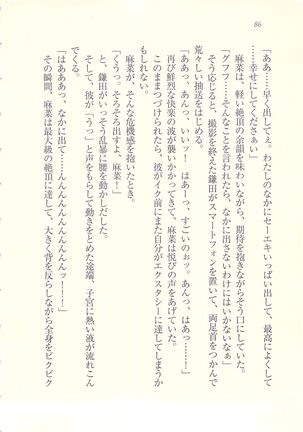 86
「ああ……早く出してぇ。わたしのなかにセーエキいっぱい出して、最高によくして
……幸せにしてくださぁい」
麻菜は、軽い絶頂の余韻を味わいながら、期待を抱きながらそう口にしていた。
「グフフ……そんなことを言われたら、なかに出さないわけにはいかないなぁ」
そう応じると、撮影を終えた鎌田がスマートフォンを置いて、両足首をつかんで
荒々しい抽送をはじめる。
「ああっ、あんっ、いいッ! はあーっ、すごいのぉッ。あんっ、はあっ……!」
再び鮮烈な快楽の波が襲いかかってきて、麻菜は悦びの声をあげていた。
このままつづけられたら、彼がイク前にまた自分がエクスタシーに達してしまうか
もしれない。
麻菜が、そんな危機感を抱いたとき。
「くうっ。そろそろ出すよ、麻菜!」
と、鎌田がいっそう乱暴に腰を動かしだした。
そして、彼が「うっ」と声をもらして動きをとめた途端、子宮に熱い液が流れこん
でくる。
「はあああっ、なかに出て……んんんんんんんんんんッ!!」
その瞬間、麻菜は最大級の絶頂に達して、大きく背を反らしながら全身をビクビク